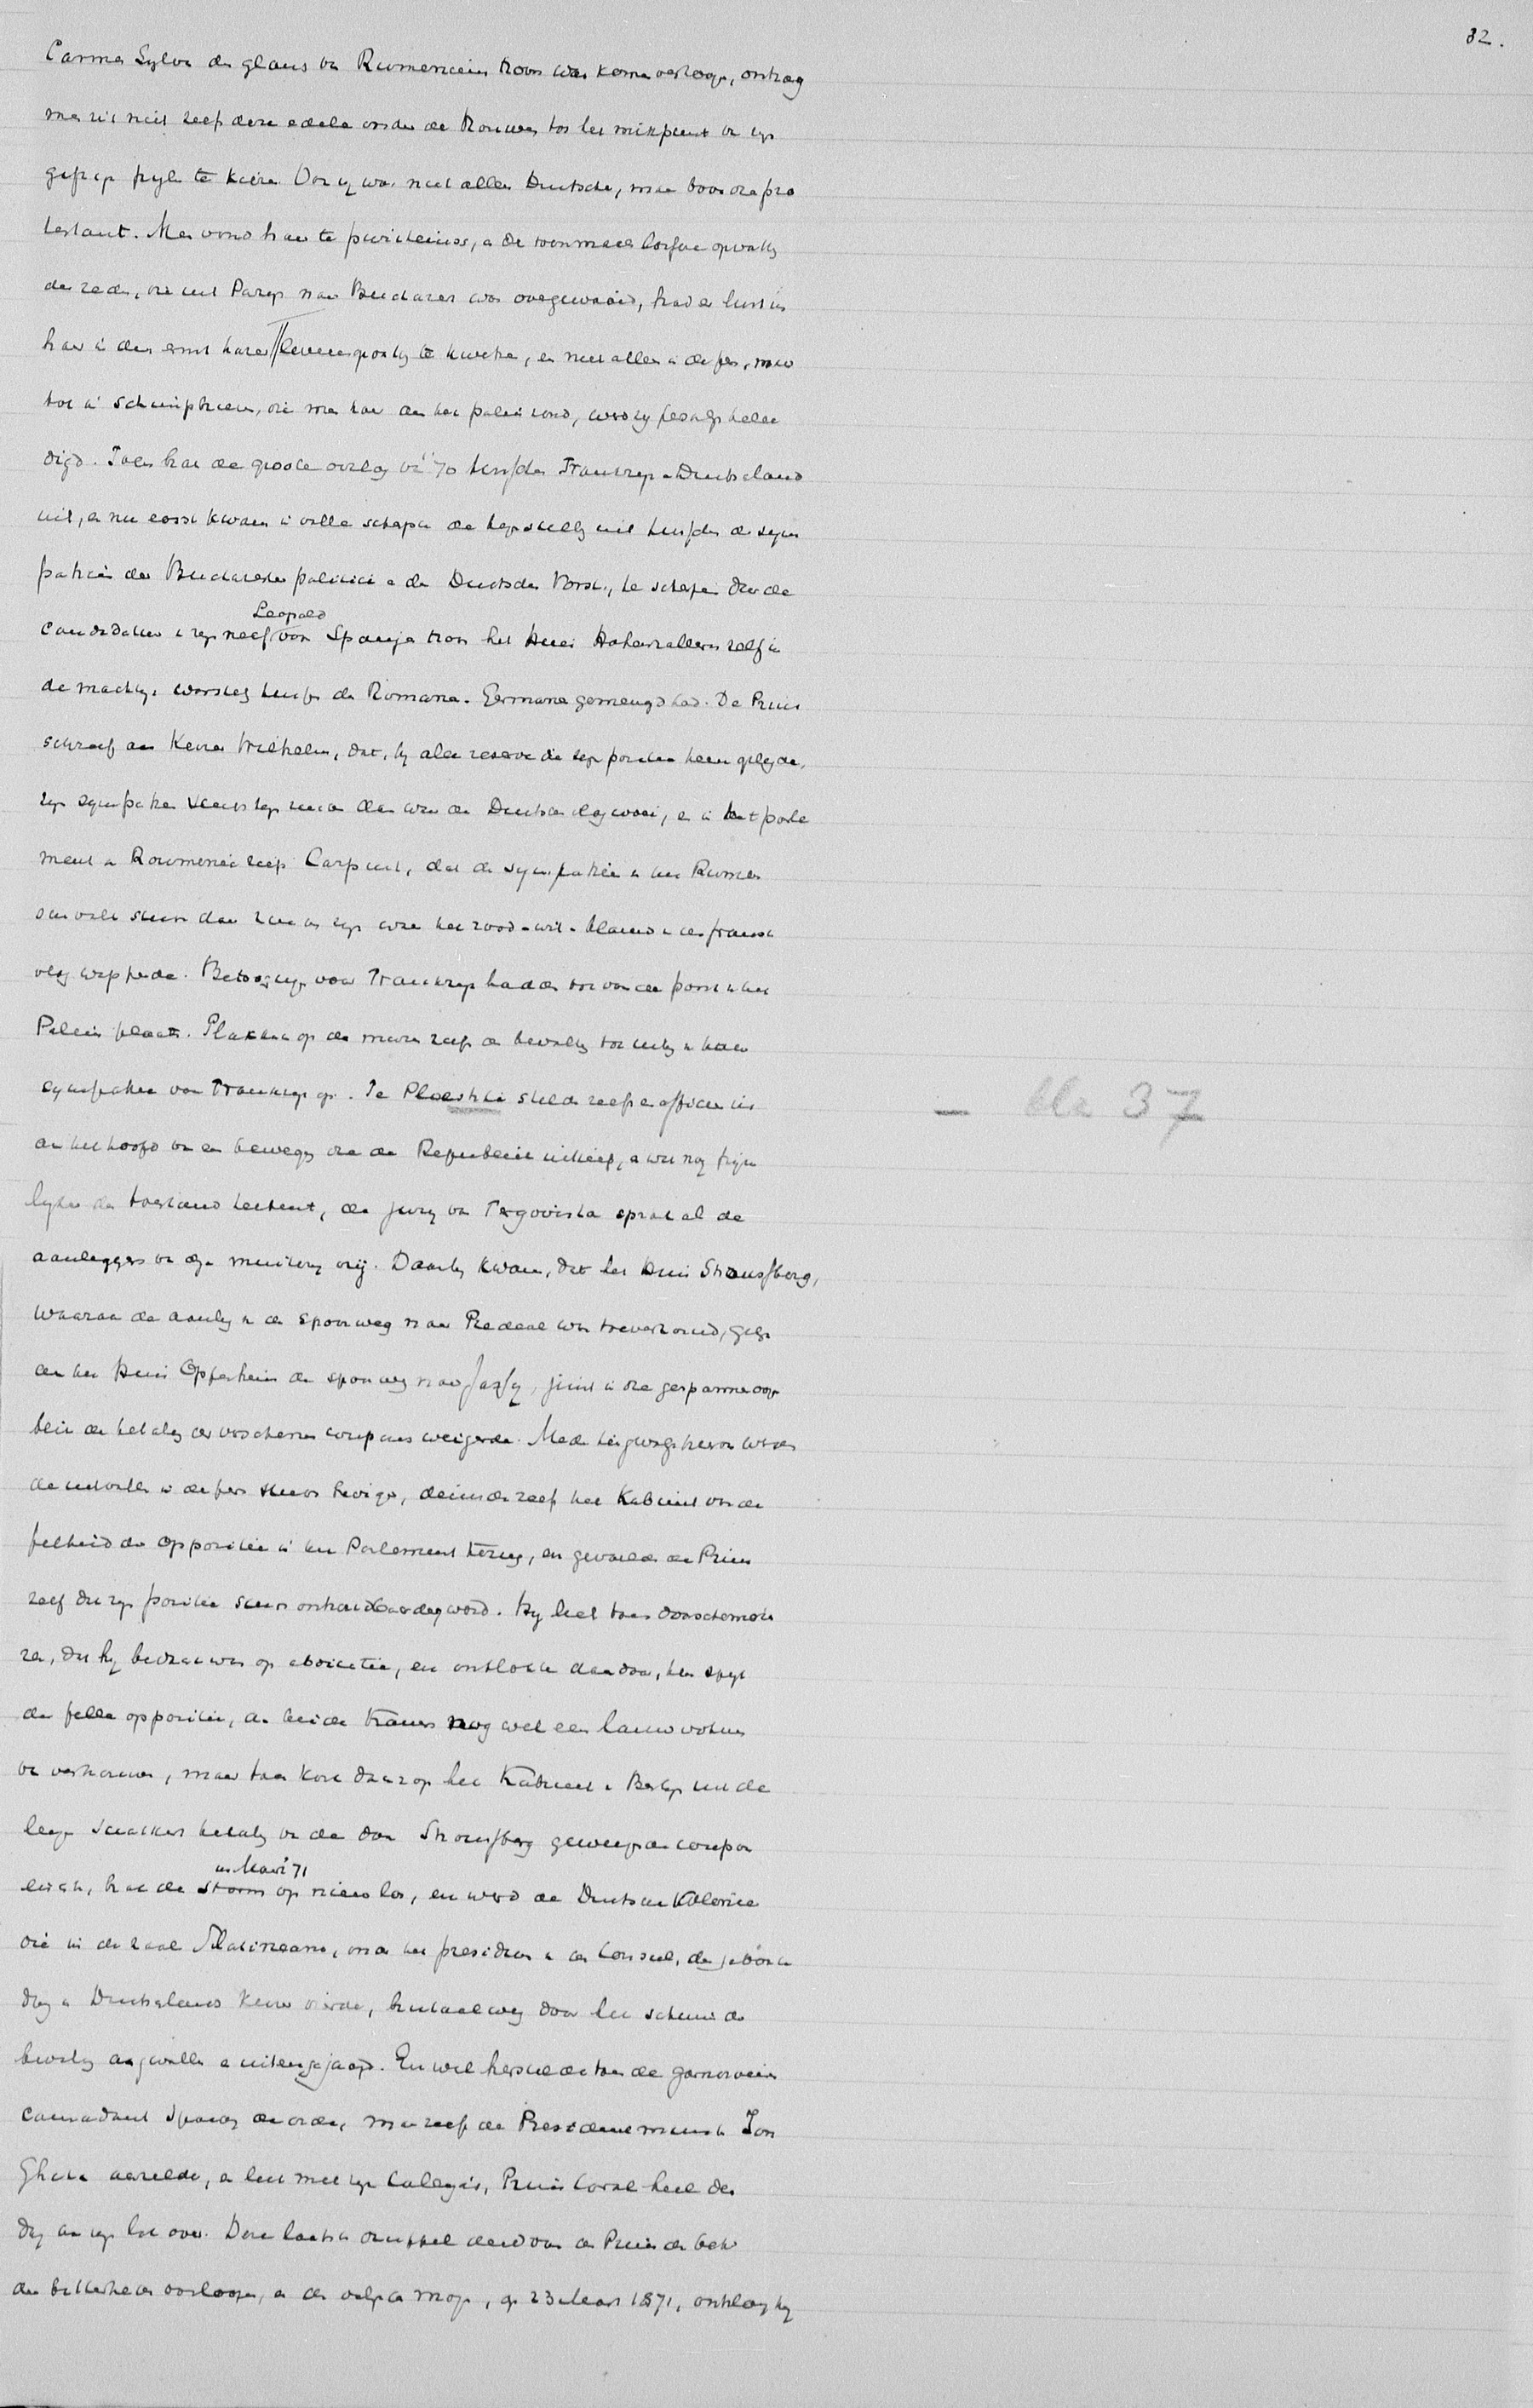 32.
Carmen Sylva den glans van Rumeniens troon was komen verhoogen, ontzag
men zich niet zelfs deze edele onder de vrouwen tot het mikpunt van zijn
giftige pijlen te kiezen. Ook zij was niet alleen Duitsche, maar bovendien pro
testant. Men vond haar te puriteinsch, en de toenmaals losse opvatting
der zeden, die uit Parijs naar Bucarest was overgewaaid, had er lust in
haar in den ernst harer levensopvatting te kwetsen, en niet alleen in de pers, maar
tot in schimpbrieven, die men haar aan het paleis zond, werd zij persoonlijk belee
digd. Toen brak de groote oorlog van '70 tusschen Frankrijk en Duitschland
uit, en nu eerst kwam in volle scherpte de tegenstelling uit tusschen de sym
pathieën der Bucarester politici en den Duitschen Vorst, te scherper daar de
candidatuur van zijn neef Leopold voor Spanje's troon het Huis Hohenzollern zelf in
de machtige worsteling tusschen de Romanen en Germanen gemengd had. De Prins
schreef aan Keizer Wilhelm, dat, bij alle reserve die zijn positie hem oplegde,
zijn sympathie steeds zijn zou daar waar de Duitsche vlag woei, en in het parle
ment van Roumenië riep Carp uit, dat de sympathie van het Rumeen
sche volk steeds daar zou zijn waar het rood-wit-blauw van de fransche
vlag wapperde. Betoogingen voor Frankrijk hadden tot voor de poort van het
Paleis plaats. Plakkaten op de muren riepen de bevolking tot uiting van haar
sympathie voor Frankrijk op. Te Ploeshti stelde zelfs een officier zich
aan het hoofd van een beweging die de Republiek uitriep, en wat nog pijn
lijker den toestand teekent, de jury van Tergovista sprak al de
aanleggers van deze muiterij vrij. Daarbij kwam, dat het Huis Strousberg,
waaraan de aanleg van den spoorweg naar Predeal was toevertrouwd, gelijk
aan het Huis Oppenheim de spoorweg naar Jassy, juist in die gespannen oogen
blik de betaling der verschenen coupons weigerde. Mede tengevolge hiervan werden
de uitvallen in de pers steeds heviger, deinsde zelfs het Kabinet voor de
felheid der oppositie in het Parlement terug, en gevoelde de Prins
zelf dat zijn positie steeds onhoudbaarder werd. Hij liet toen doorscheme
ren, dat hij bedacht was op abdicatie, en ontlokte daardoor, ten spijt
der felle oppositie, aan beide Kamers nog wel een lauw votum
van vertrouwen, maar toen kort daarop het Kabinet van Berlijn uit de
leege schatkist betaling van de door Strousberg geweigerde coupon
eischte, brak de storm in Maart '71 op nieuw los, en werd de Duitsche Kolonie
die in de zaal Slatineanu, onder het presidium van den Consul, den geboorte
dag van Duitschlands Keizer vierde, brutaalweg door het schuim der
bevolking aangevallen en uiteengejaagd. En wel herstelde toen de garnizoens
commandant spoedig de orde, maar zelfs de President-minister Ion
Ghica aarzelde, en liet met zijn collega's, Prins Carol heel den
dag aan zijn lot over. Deze laatste druppel deed voor den Prins de beker
der bitterheid overloopen, en den volgenden morgen, op 23 Maart 1871, ontbood hij
— blz 37